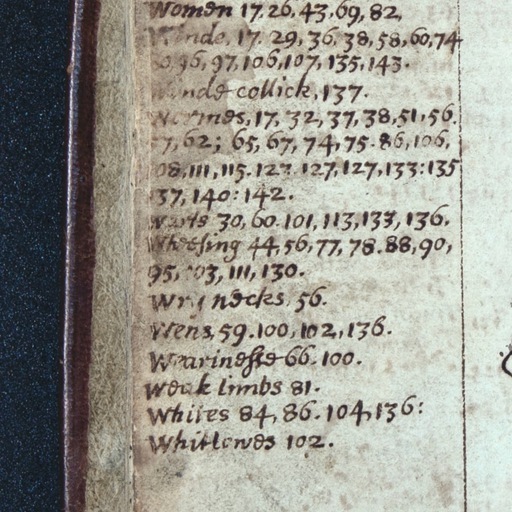 Women 17, 26, 43, 69, 82,
Winde, 17. 29, 36, 38, 58, 60, 74
96, 97, 106, 107, 135, 143.
Winde collick, 137.
Wormes, 17, 32, 37, 38, 51, 56.
57, 62; 65, 67, 74, 75. 86, 106,
108, 111, 115. 123. 127, 127, 133: 135
137, 140: 142.
Warts 30, 60. 101, 113, 133, 136.
Wheesing 44, 56, 77, 78. 88, 90,
95, 103, 111, 130.
Wry necks, 56.
Wens, 59. 100, 102, 136.
Wearinesse 66. 100.
Weak limbs 81.
Whites 84, 86. 104, 136:
Whitlowes 102.